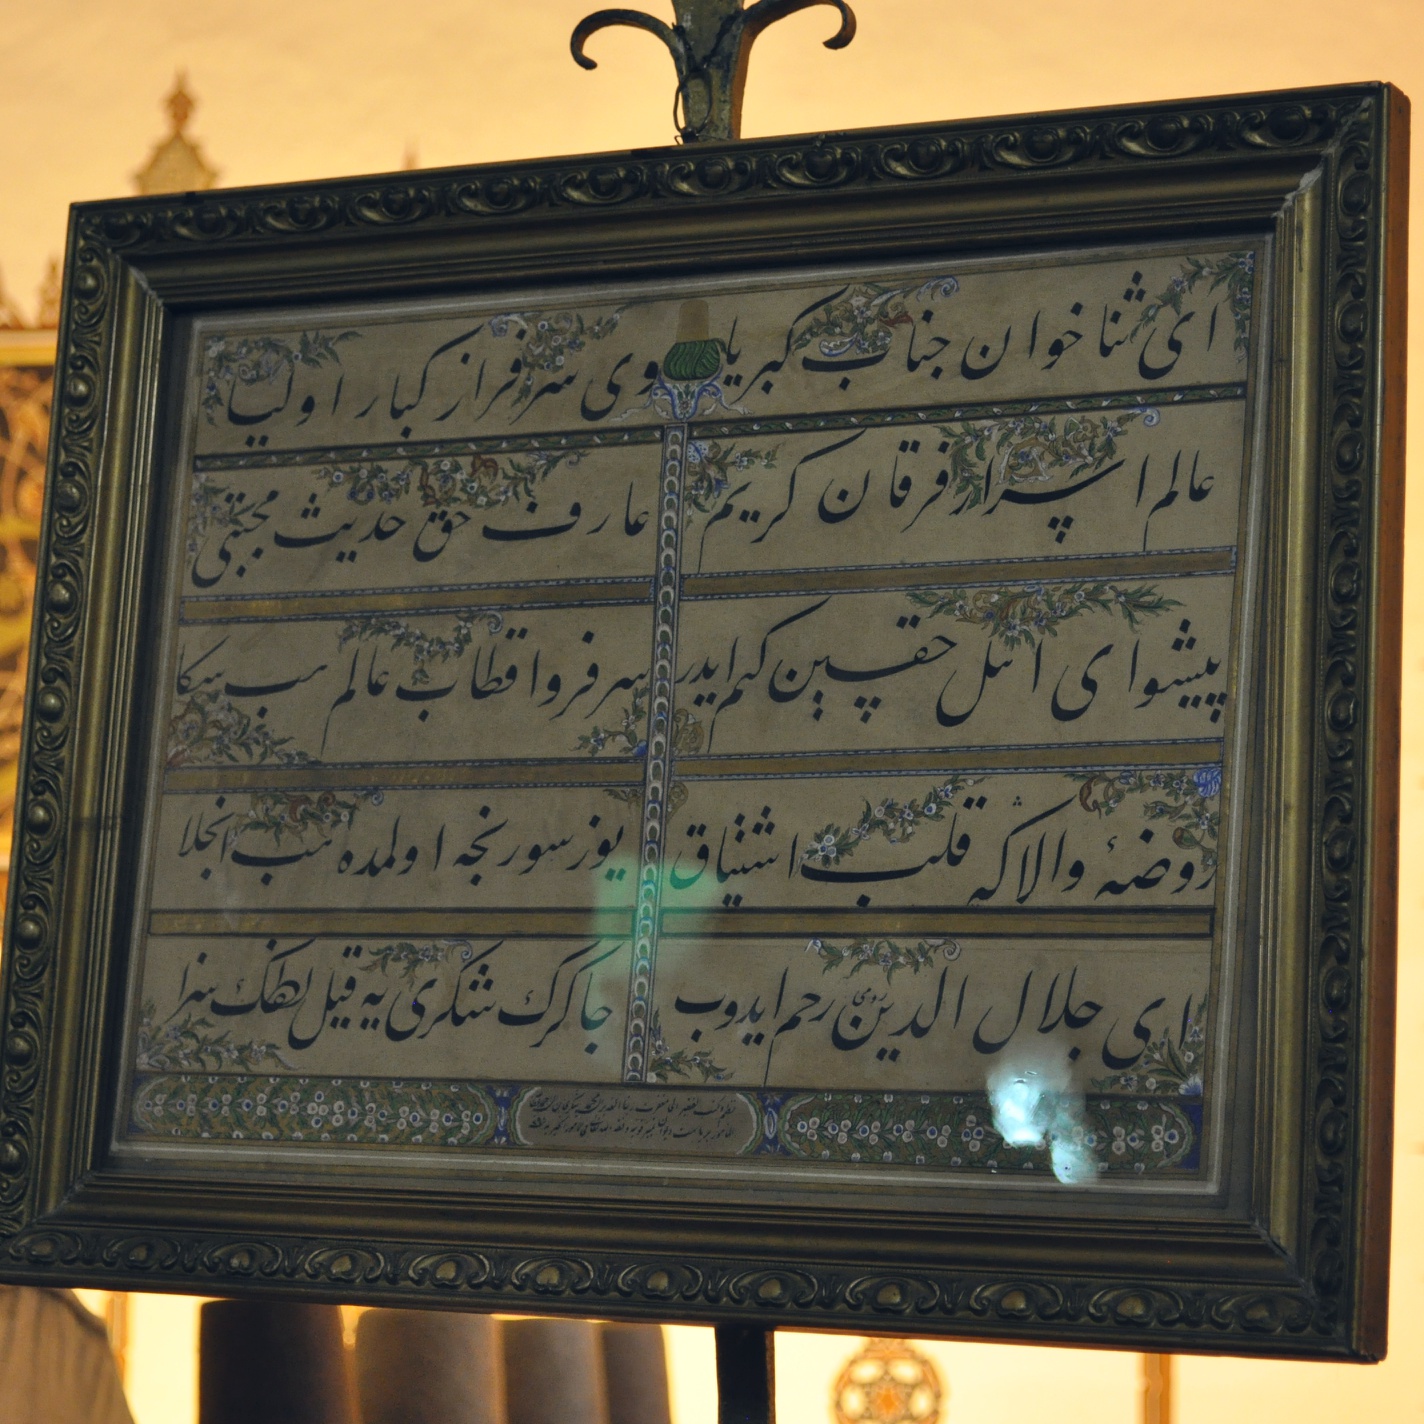 ای ثناخوان جناب کبریا
وی سرفراز کبار اولیا
عالم اسرار فرقان کریم
عارف حق حدیث مجتبی
پیشوای اهل حقسین کم ایدر
سرفرو اقطاب عالم هب سکا
روضهٔ والاکه قلب اشتیاق
یوز سورنجه اولمده هب انجلا
ای جلال الدین رومی رحم ایدوب
چاکرک شکری یه قیل لطفک سزا